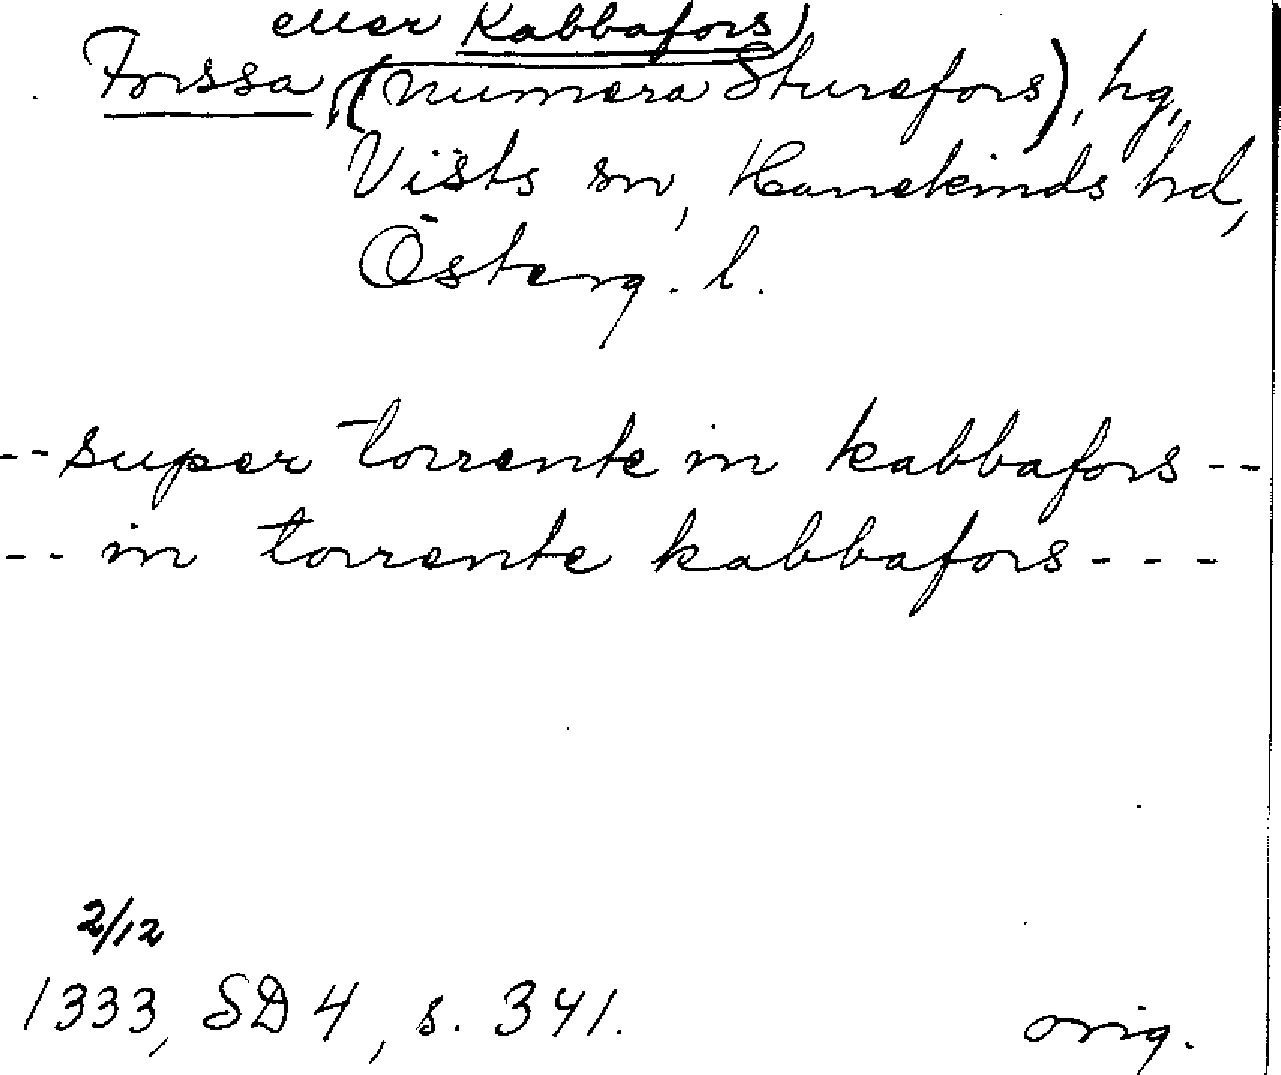 eller Kabbafors)
Forssa, (numera Sturefors), hg,
Vists sn, Hanekinds hd,
Österg. l.
-- super torrente in kabbafors --
-- in torrente kabbafors ---
2/12
1333, SD 4, s. 341.
orig.